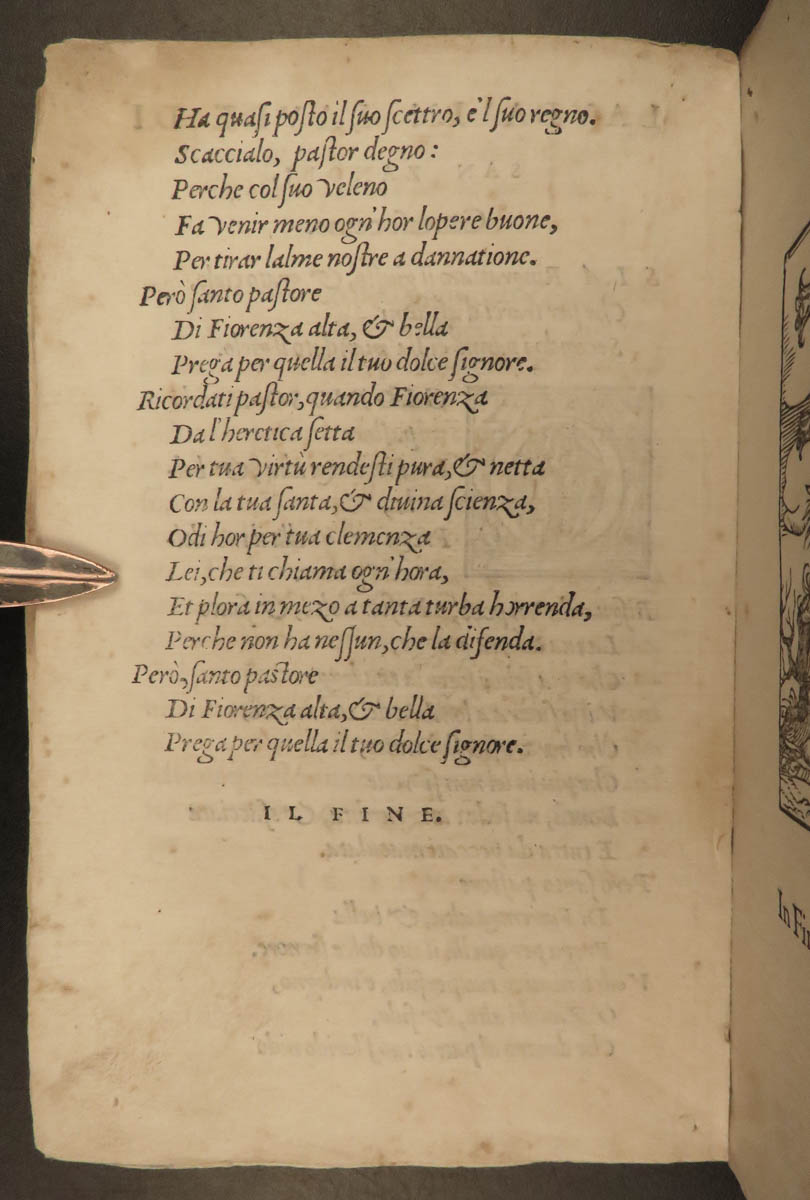 Ha quaſi poſto il ſuo ſcettro, e'l ſuo regno.
Scaccialo, paſtor degno:
Perche col ſuo veleno
Fa venir meno ogn'hor lopere buone,
Per tirar lalme noſtre a dannatione.
Però ſanto paſtore
Di Fiorenza alta, & bella
Prega per quella il tuo dolce ſignore.
Ricordati paſtor, quando Fiorenza
Da l'heretica ſetta
Per tua virtù rendeſti pura, & netta
Con la tua ſanta, & diuina ſcienza,
Odi hor per tua clemenza
Lei, che ti chiama ogn'hora,
Et plora in mezo a tanta turba horrenda,
Perche non ha neſſun, che la difenda.
Però, ſanto paſtore
Di Fiorenza alta, & bella
Prega per quella il tuo dolce ſignore.
IL FINE.
In Fi